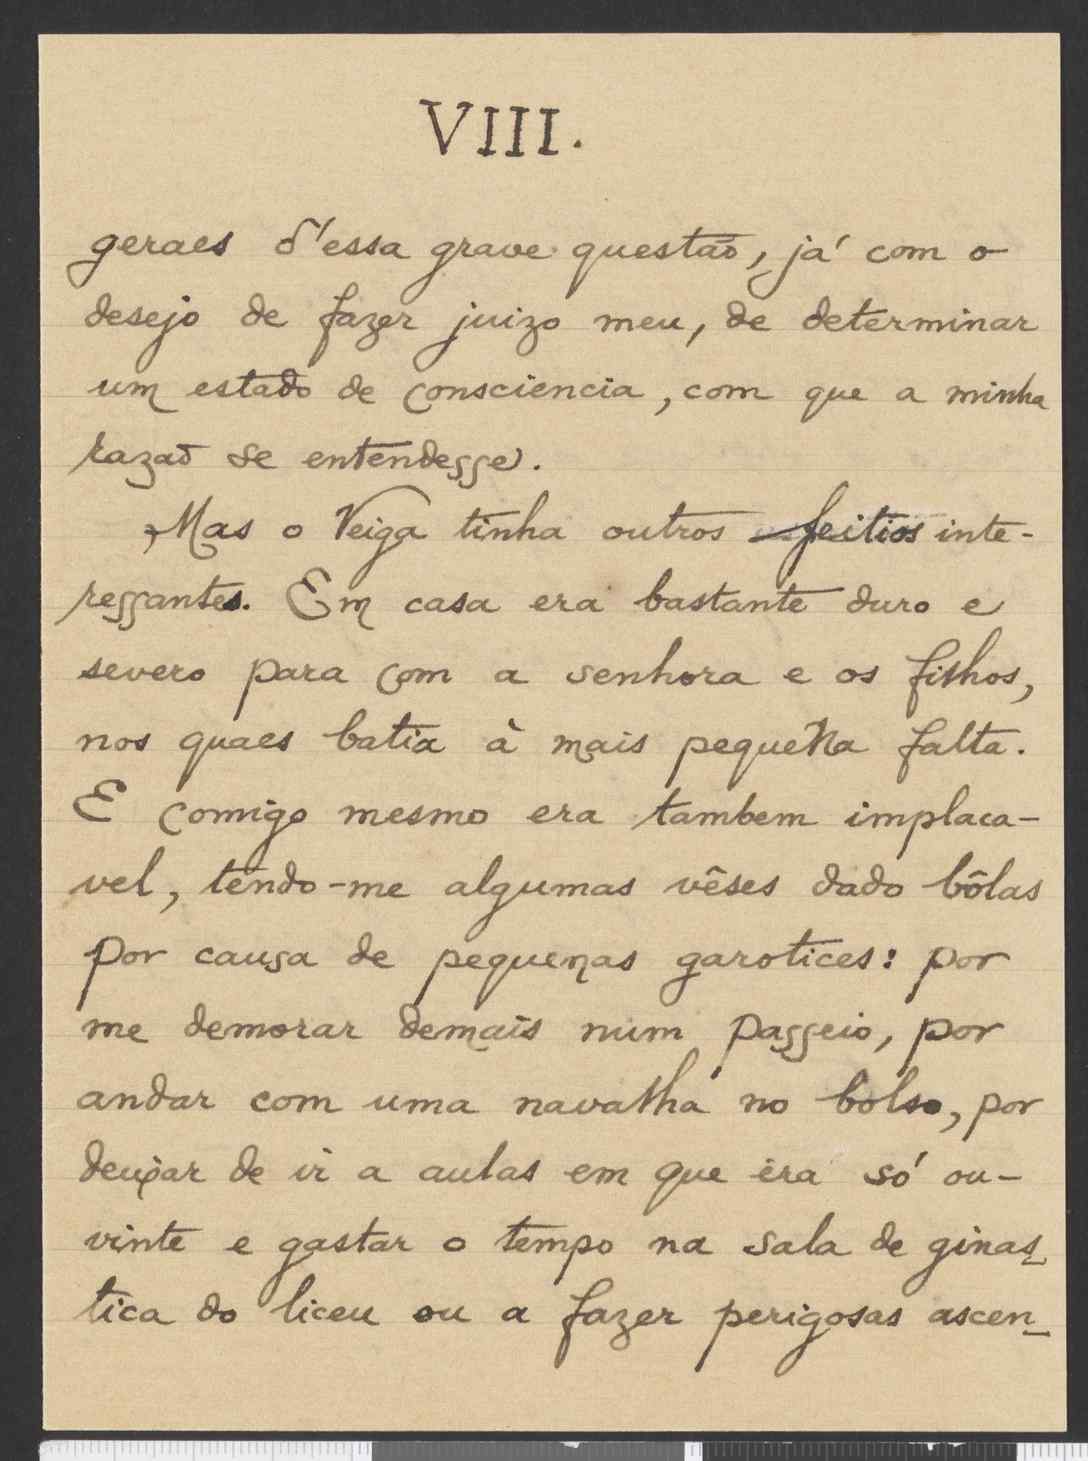 VIII.
geraes d'essa grave questaõ, já com o
desejo de fazer juizo meu, de determinar
um estado de consciencia, com que a minha
razaõ se entendesse.
Mas o Veiga tinha outros feitios inte-
ressantes. Em casa era bastante duro e
severo para com a senhora e os filhos,
nos quaes batia à mais pequena falta.
E comigo mesmo era tambem implaca-
vel, tendo-me algumas vêses dado bôlas
por causa de pequenas garotices: por
me demorar demais num passeio, por
andar com uma navalha no bolso, por
deixar de ir a aulas em que era só ou-
vinte e gastar o tempo na sala de ginas-
tica do liceu ou a fazer perigosas ascen-